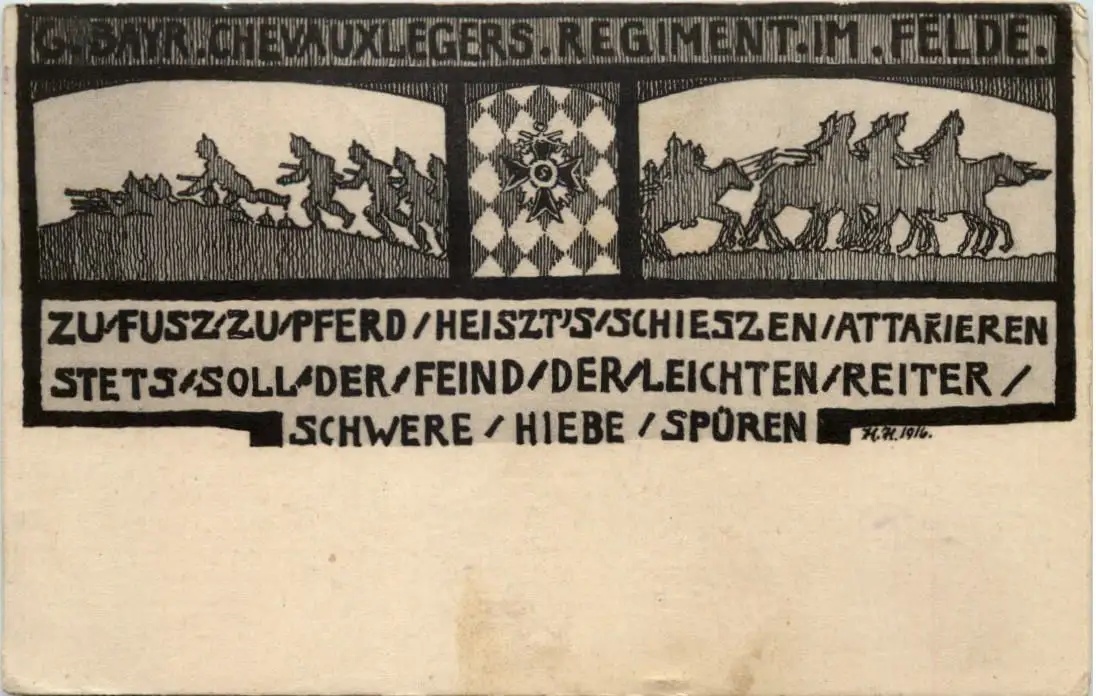 6.BAYR.CHEVAUXLEGERS.REGIMENT.IM.FELDE.
ZU/FUSZ/ZU/PFERD/HEISZT'S/SCHIESZEN/ATTAKIEREN
STETS/SOLL/DER/FEIND/DER/LEICHTEN/REITER/
SCHWERE/HIEBE/SPÜREN
H.H.1916.